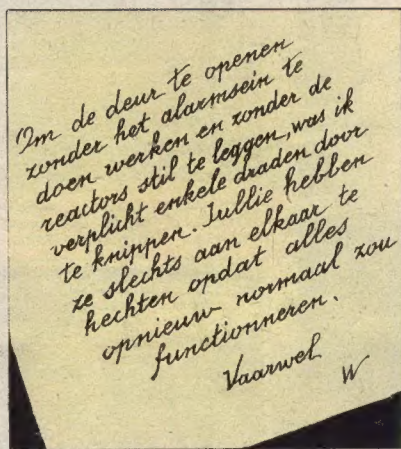 Om de deur te openen
zonder het alarmsein te
doen werken en zonder de
reactors stil te leggen, was ik
verplicht enkele draden door
te knippen. Jullie hebben
ze slechts aan elkaar te
hechten opdat alles
opnieuw normaal zou
functionneren.
Vaarwel
W